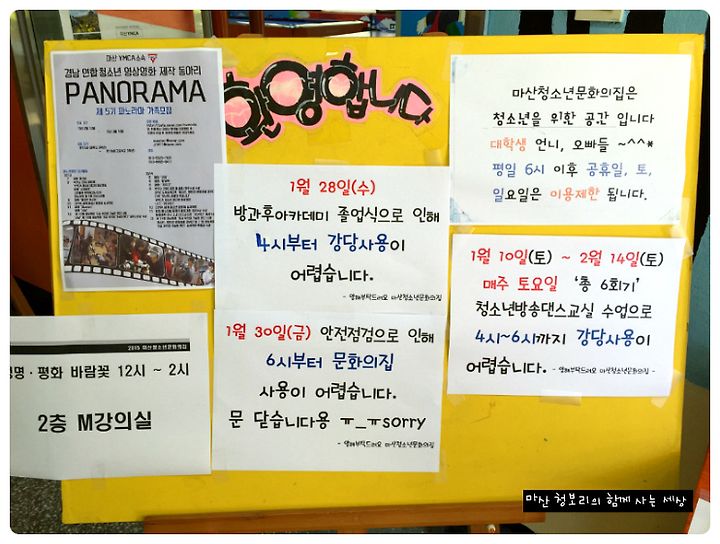 마산 YMCA 소속
경남 연합 청소년 영상영화 제작 동아리
PANORAMA
제 5기 파노라마 가족모집
환영합니다
마산청소년문화의집은
청소년을 위한 공간 입니다
대학생 언니, 오빠들 ~^^*
평일 6시 이후 공휴일, 토,
일요일은 이용제한 됩니다.
1월 28일(수)
방과후아카데미 졸업식으로 인해
4시부터 강당사용이
어렵습니다.
- 양해부탁드려요 마산청소년문화의집
1월 10일(토) ~ 2월 14일(토)
매주 토요일 '총 6회기'
청소년방송댄스교실 수업으로
4시~6시까지 강당사용이
어렵습니다. - 양해부탁드려요 마산청소년문화의집 -
1월 30일(금) 안전점검으로 인해
6시부터 문화의집
사용이 어렵습니다.
문 닫습니다용 ㅠ_ㅠsorry
- 양해부탁드려요 마산청소년문화의집
2015 마산청소년문화의집
명·평화 바람꽃 12시 ~ 2시
2층 M강의실
마산 청보리의 함께 사는 세상